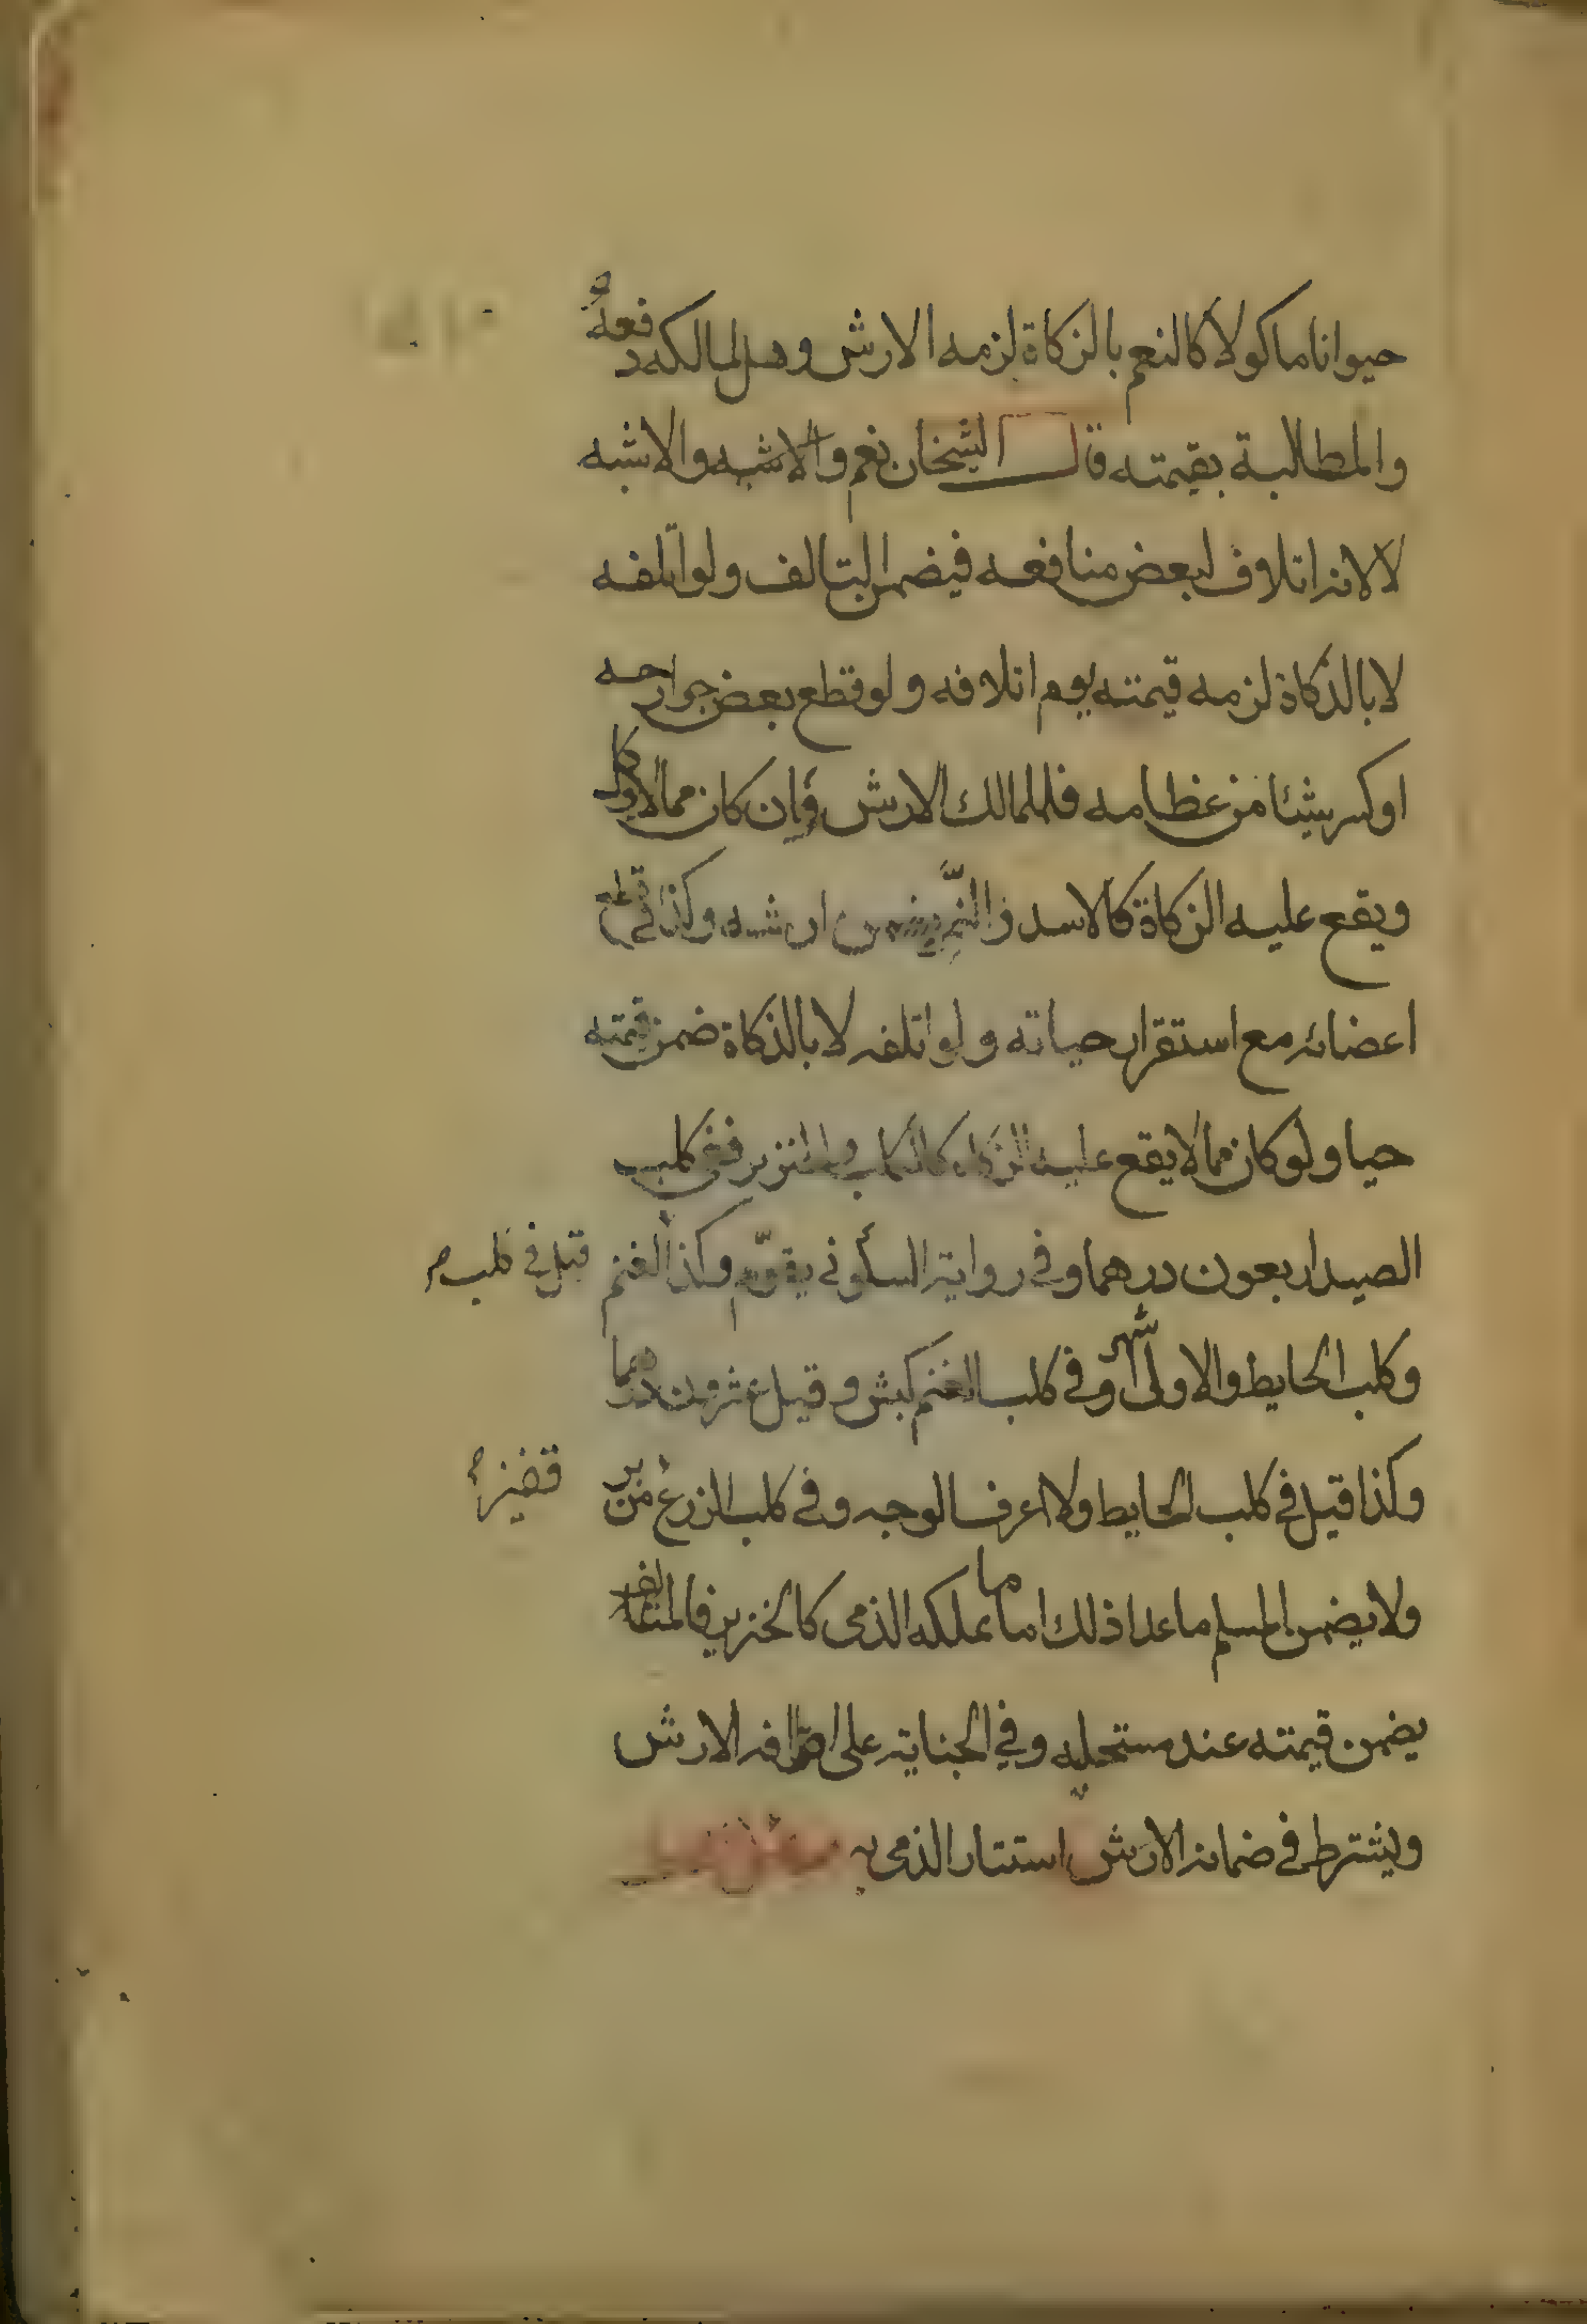 حيوانا ماكولا كالنعم بالزكاة لزمه الارش وهل لمالكه دفعه
والمطالبة بقيمته قال الشيخان نعم والاشبه والاشبه
لا لانه اتلاف لبعض منافعه فيضمن التالف ولو اتلفه
لا بالذكاة لزمه قيمته يوم اتلافه ولو قطع بعض جوارحه
او كسر شيئا من عظامه فللمالك الارش وإن كان مما لا يوكل
ويقع عليه الزكاة كالاسد والنمر يضمن ارشه وكذا في قطع
اعضائه مع استقرار حياته ولو اتلفه لا بالذكاة ضمن قيمته
حيا ولو كان مما لا يقع عليه الزكاة كالكلب والخنزير ففي كلب
الصيد اربعون درهما وفي رواية السكوني يقوّم وكذا الغنم
قيل في كلب
وكلب الحايط والاولى اشهر وفي كلب الغنم كبش وقيل عشرون درهما
وكذا قيل في كلب الحايط ولا اعرف الوجه وفي كلب الزرع من بر
قفيز
ولا يضمن المسلم ما عدا ذلك اما ما يملكه الذمى كالخنزير فالمتلف
يضمن قيمته عند مستحليه وفي الجناية على اطرافه الارش
ويشترط في ضمانه الارش استتار الذمى به